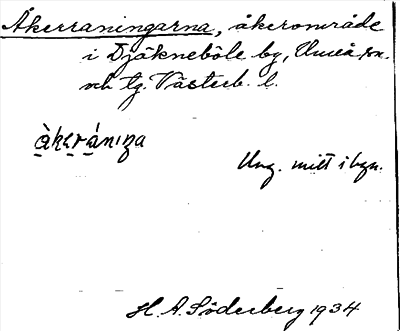 Åkerraningarna, åkerområde
i Djäkneböle by, Umeå sn.
och tg. Västerb. l.
Ung. mitt i byn.
H. A. Söderberg 1934